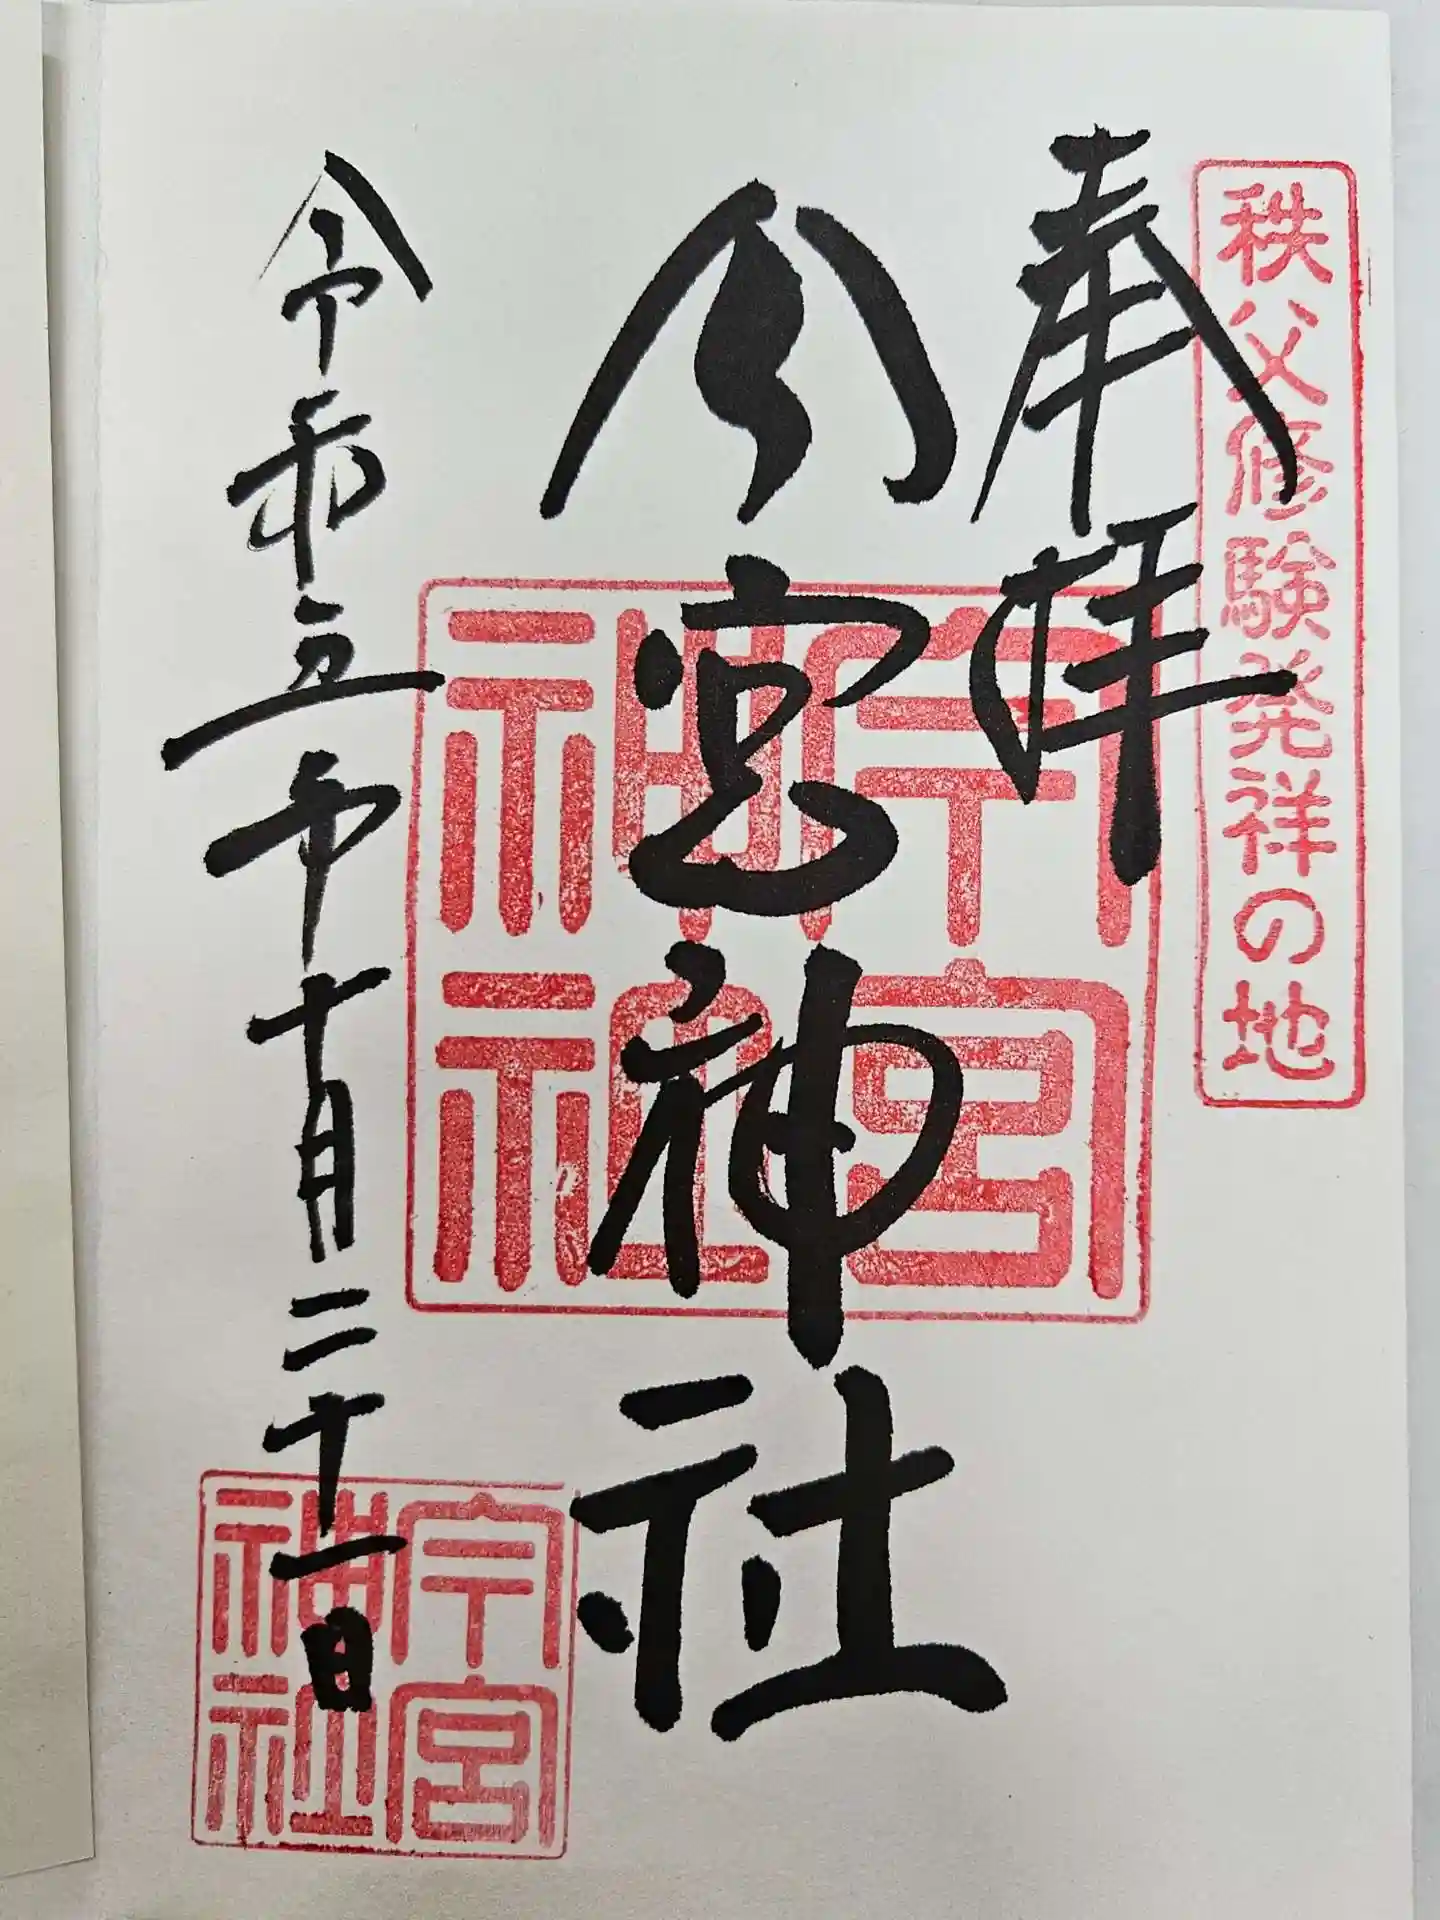 秩父修験発祥の地
奉拝
今宮神社
今宮
神社
令和五年十月二十一日
今宮
神社